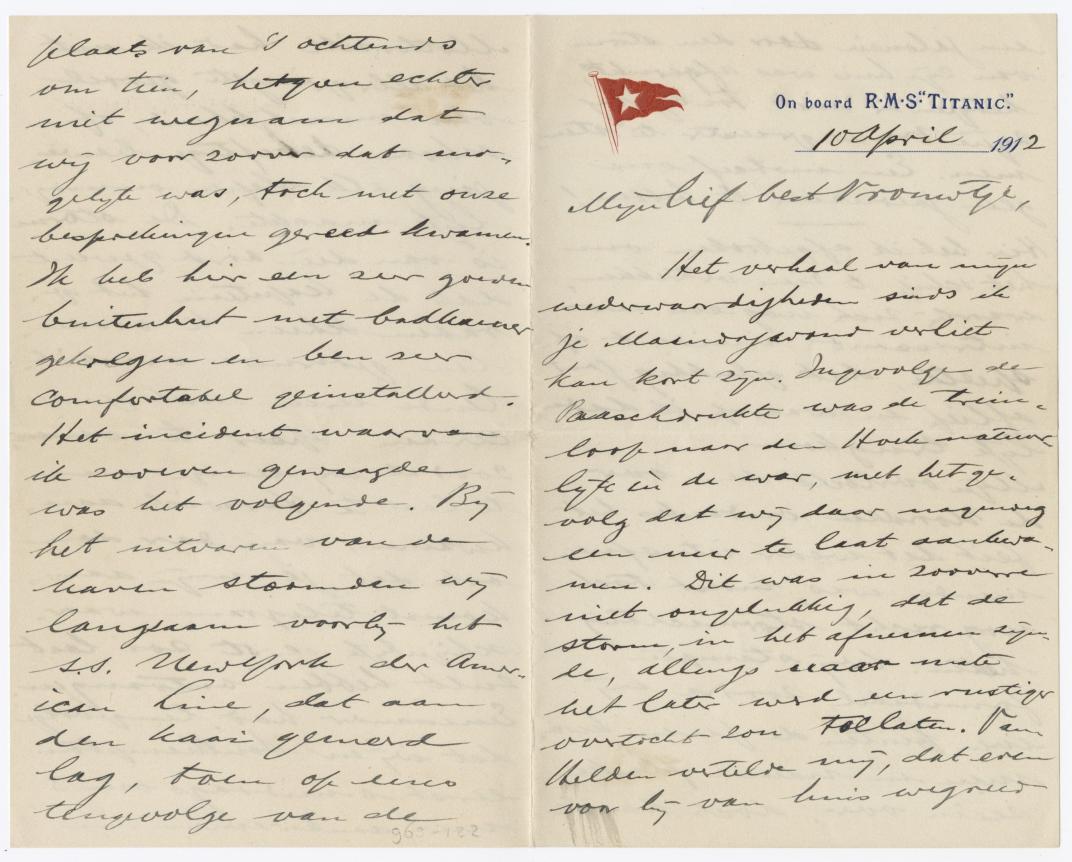 On board R·M·S·"TITANIC."
10 April 1912
Mijn lief best Vrouwtje,
Het verhaal van mijn
wederwaardigheden sinds ik
je Maandagavond verliet
kan kort zijn. Ingevolge de
Paaschdrukte was de trein-
loop naar den Hoek natuur
lijk in de war, met het ge-
volg dat wij daar nagenoeg
een uur te laat aankwa-
men. Dit was in zooverre
niet ongelukkig, dat de
storm, in het afnemen zijn-
de, allengs naar mate
het later werd een rustiger
overtocht zou toelaten. Van
Helden vertelde mij, dat even
voor hij van huis wegreed
plaats van 's ochtends
om tien, hetgeen echter
niet wegnam dat
wij voor zoover dat mo-
gelijk was, toch met onze
besprekingen gereed kwamen.
Ik heb hier een zeer goeden
buitenhut met badkamer
gekregen en ben zeer
comfortabel geinstalleerd.
Het incident waarvan
ik zooeven gewaagde
was het volgende. Bij
het uitvaren van de
haven stoomden wij
langzaam voorbij het
s.s. NewYork der Amer-
ican Line, dat aan
den kaai gemeerd
lag, toen op eens
tengevolge van de
963-122